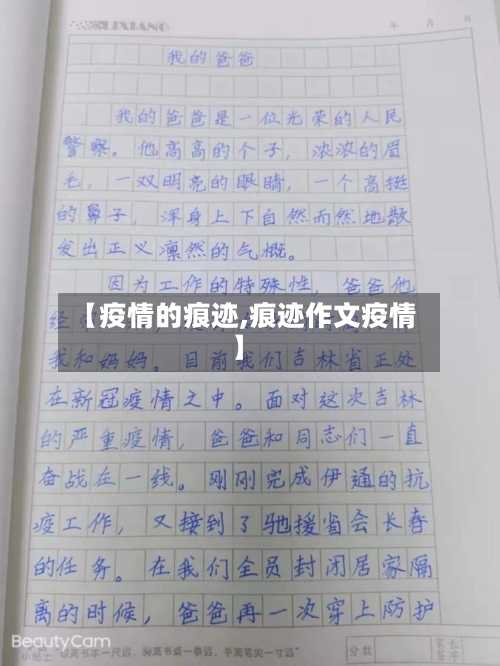 LIXIANG
年 月 日
我的爸爸
我的爸爸是一位光荣的人民
警察。他高高的个子，浓浓的眉
毛，一双明亮的眼睛，一个高挺
的鼻子，浑身上下自然而然地散
发出正义凛然的气概。
因为工作的特殊性，爸爸他
经
【疫情的痕迹,痕迹作文疫情
】
我和妈妈。目前我们吉林省正处
在新冠疫情之中。面对这次吉林
的严重疫情，爸爸和同志们一直
奋战在一线。刚刚完成伊通的抗
疫工作，又接到了驰援省会长春
的任务。在我们全员封闭居家隔
离的时候，爸爸再一次穿上防护
BeautyCam
小贴士 眼离书本一尺远，胸离书桌一拳远，手离笔尖一寸远
分数
家长
签字